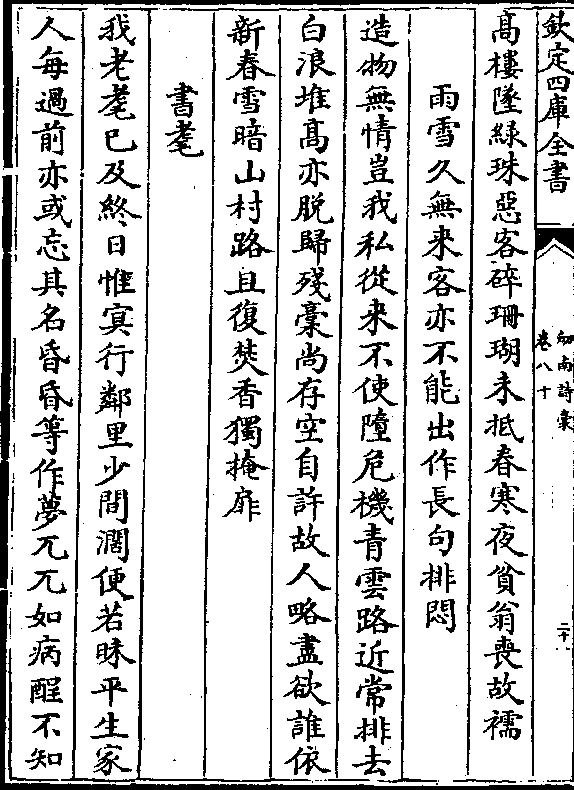 欽定四庫全書
劒南詩稾
卷八十
髙樓墜緑珠惡客碎珊瑚未抵春寒夜貧翁喪故襦
雨雪久無来客亦不能出作長句排悶
造物無情豈我私從来不使墮危機青雲路近常排去
白浪堆髙亦脱歸殘稾尚存空自許故人略盡欲誰依
新春雪暗山村路且復焚香獨掩扉
書耄
我老耄已及終日惟㝠行鄰里少間濶便若昧平生家
人每過前亦或忘其名昏昏等作夢兀兀如病酲不知